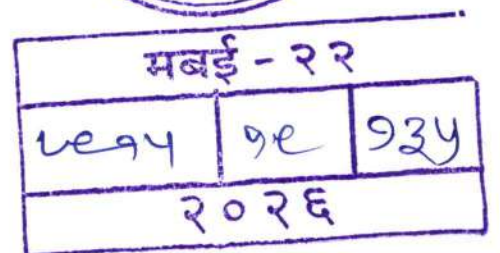 मबई - २२
५९१५ १९ १३५
२०२६